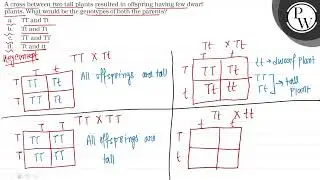 A cross between two tall plants resulted in offspring having few dwarf
plants. What would be the genotypes of both the parents?
a. TT and Tt
b. Tt and Tt
c. TT and TT
d. Tt and tt
Key concept
TT X Tt
T t
T TT Tt
T TT Tt
All offsprings are tall
Tt X Tt
T t
T TT Tt
t Tt tt
tt → dwarf plant
TT
Tt
tall plant
TT X TT
T T
T TT TT
T TT TT
All offsprings are
tall
Tt X tt
T
t
PW